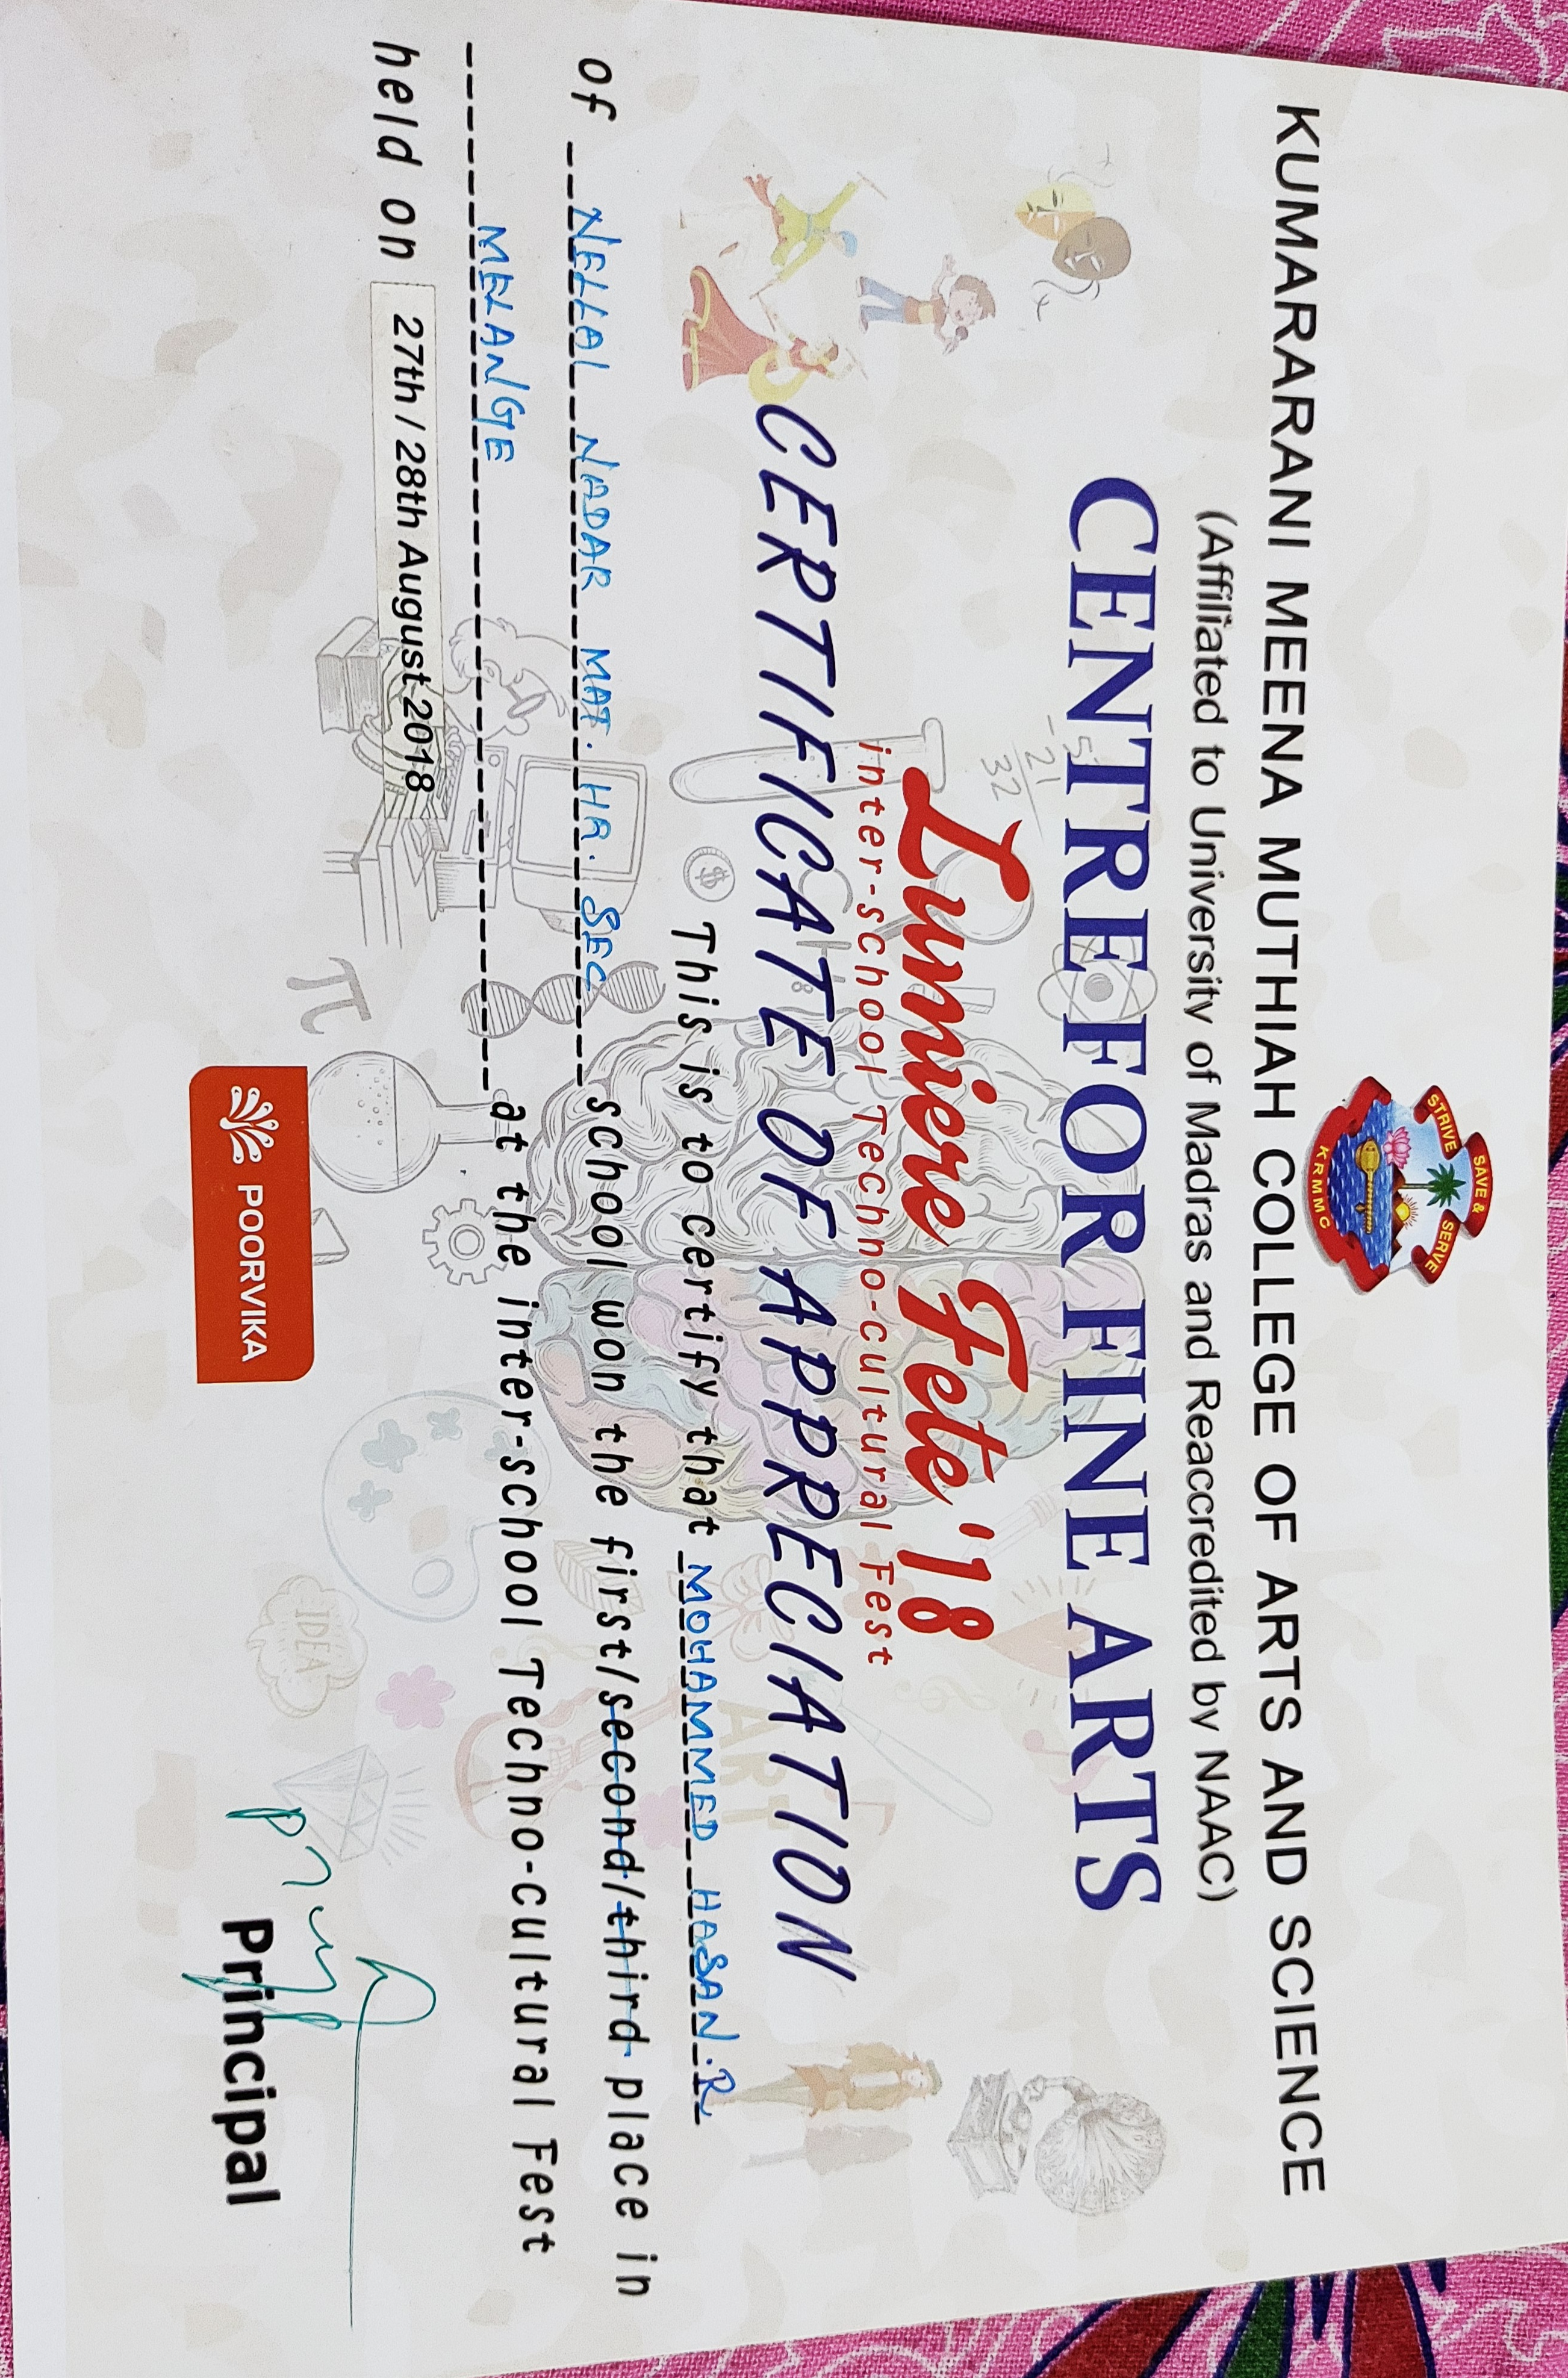 SAVE &
STRIVE SERVE
KRMMC
KUMARARANI MEENA MUTHIAH COLLEGE OF ARTS AND SCIENCE
(Affiliated to University of Madras and Reaccredited by NAAC)
CENTRE FOR FINE ARTS
-51
21
32
Lumiere Fete '18
inter-school Techno-cultural Fest
CERTIFICATE OF APPRECIATION
ART
$
This is to certify that MOHAMMED HASAN.R
of NELLAI NADAR MAT. HR. SEC school won the first/second/third place in
MELANGE at the inter-school Techno-cultural Fest
held on 27th / 28th August 2018
π
IDEA
POORVIKA
Principal